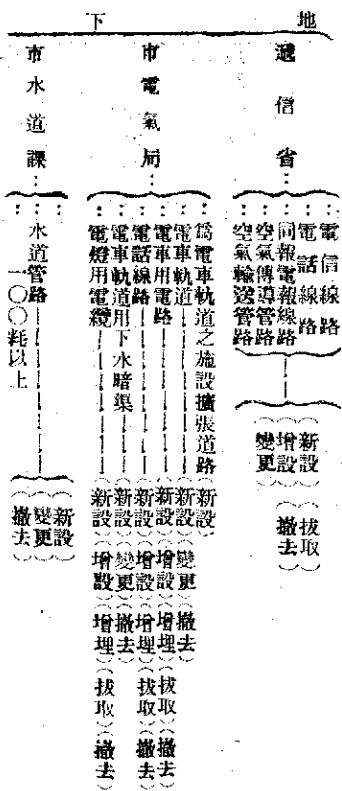 地下
遞信省…
電信線路
電話線路
同報電報線路
空氣傳導管路
空氣輸送管路
(新設)(拔取)
(增設)(撤去)
變更
市電氣局…
爲電車軌道之施設擴張道路(新設)
電車軌道(新設)(變更)(撤去)
電車用電路(新設)(增設)(增埋)(拔取)(撤去)
電話線路(新設)(增設)(增埋)(拔取)(撤去)
電車軌道用下水暗渠(新設)(變更)(撤去)
電燈用電纜(新設)(增設)(增埋)(拔取)(撤去)
市水道課…
水道管路
一〇〇粍以上
(新設)
(變更)
(撤去)